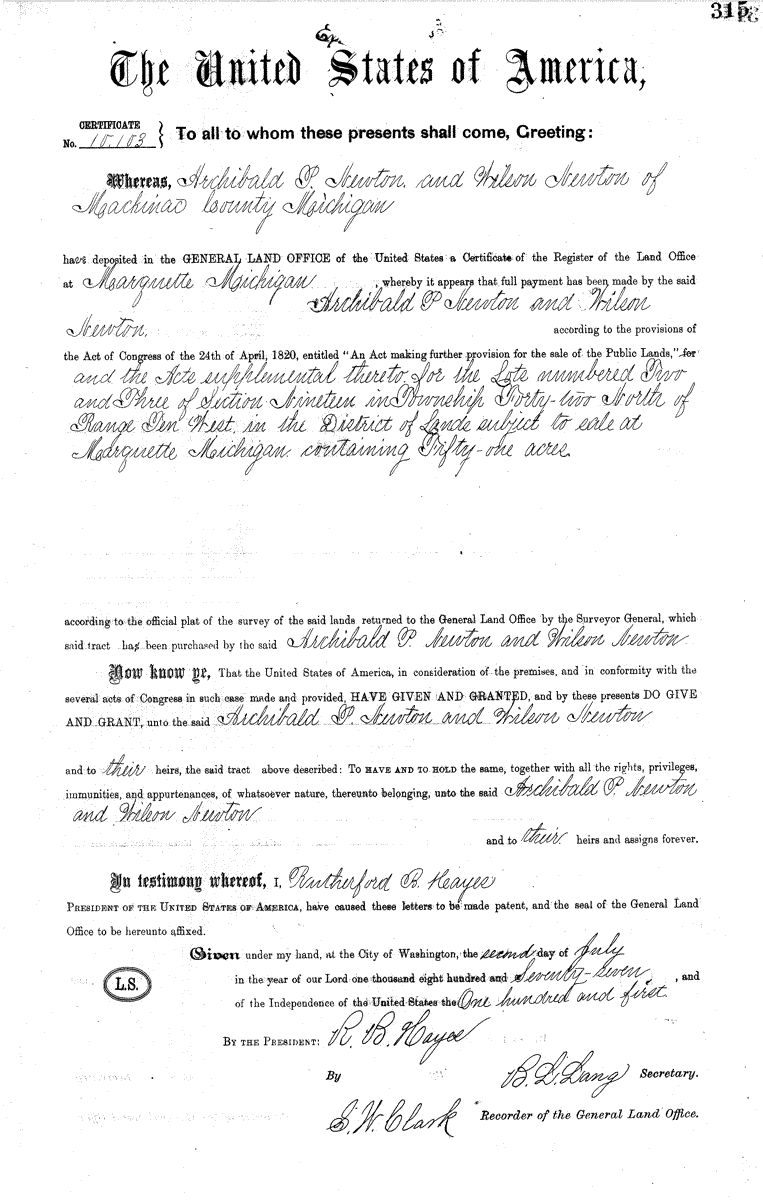 315
The United States of America,
CERTIFICATE
No. 10.103 } To all to whom these presents shall come, Greeting:
Whereas, Archibald P. Newton and Wilson Newton of
Mackinac County Michigan
have deposited in the GENERAL LAND OFFICE of the United States a Certificate of the Register of the Land Office
at Marquette Michigan , whereby it appears that full payment has been made by the said
Archibald P Newton and Wilson
Newton. according to the provisions of
the Act of Congress of the 24th of April, 1820, entitled "An Act making further provision for the sale of the Public Lands," for
and the Acts supplemental thereto for the Lots numbered Two
and Three of Section Nineteen in Township Forty-two North of
Range Ten West, in the District of Lands subject to sale at
Marquette Michigan containing Fifty-one acres.
according to the official plat of the survey of the said lands returned to the General Land Office by the Surveyor General, which
said tract has been purchased by the said Archibald P. Newton and Wilson Newton
Now know ye, That the United States of America, in consideration of the premises, and in conformity with the
several acts of Congress in such case made and provided, HAVE GIVEN AND GRANTED, and by these presents DO GIVE
AND GRANT, unto the said Archibald P. Newton and Wilson Newton
and to their heirs, the said tract above described: TO HAVE AND TO HOLD the same, together with all the rights, privileges,
immunities, and appurtenances, of whatsoever nature, thereunto belonging, unto the said Archibald P. Newton
and Wilson Newton
and to their heirs and assigns forever.
In testimony whereof, I, Rutherford B. Hayes
PRESIDENT OF THE UNITED STATES OF AMERICA, have caused these letters to be made patent, and the seal of the General Land
Office to be hereunto affixed.
Given under my hand, at the City of Washington, the second day of July
L.S. in the year of our Lord one thousand eight hundred and Seventy-seven , and
of the Independence of the United States the One hundred and first.
BY THE PRESIDENT: R. B. Hayes
By B. L. Lang Secretary.
S. W. Clark Recorder of the General Land Office.